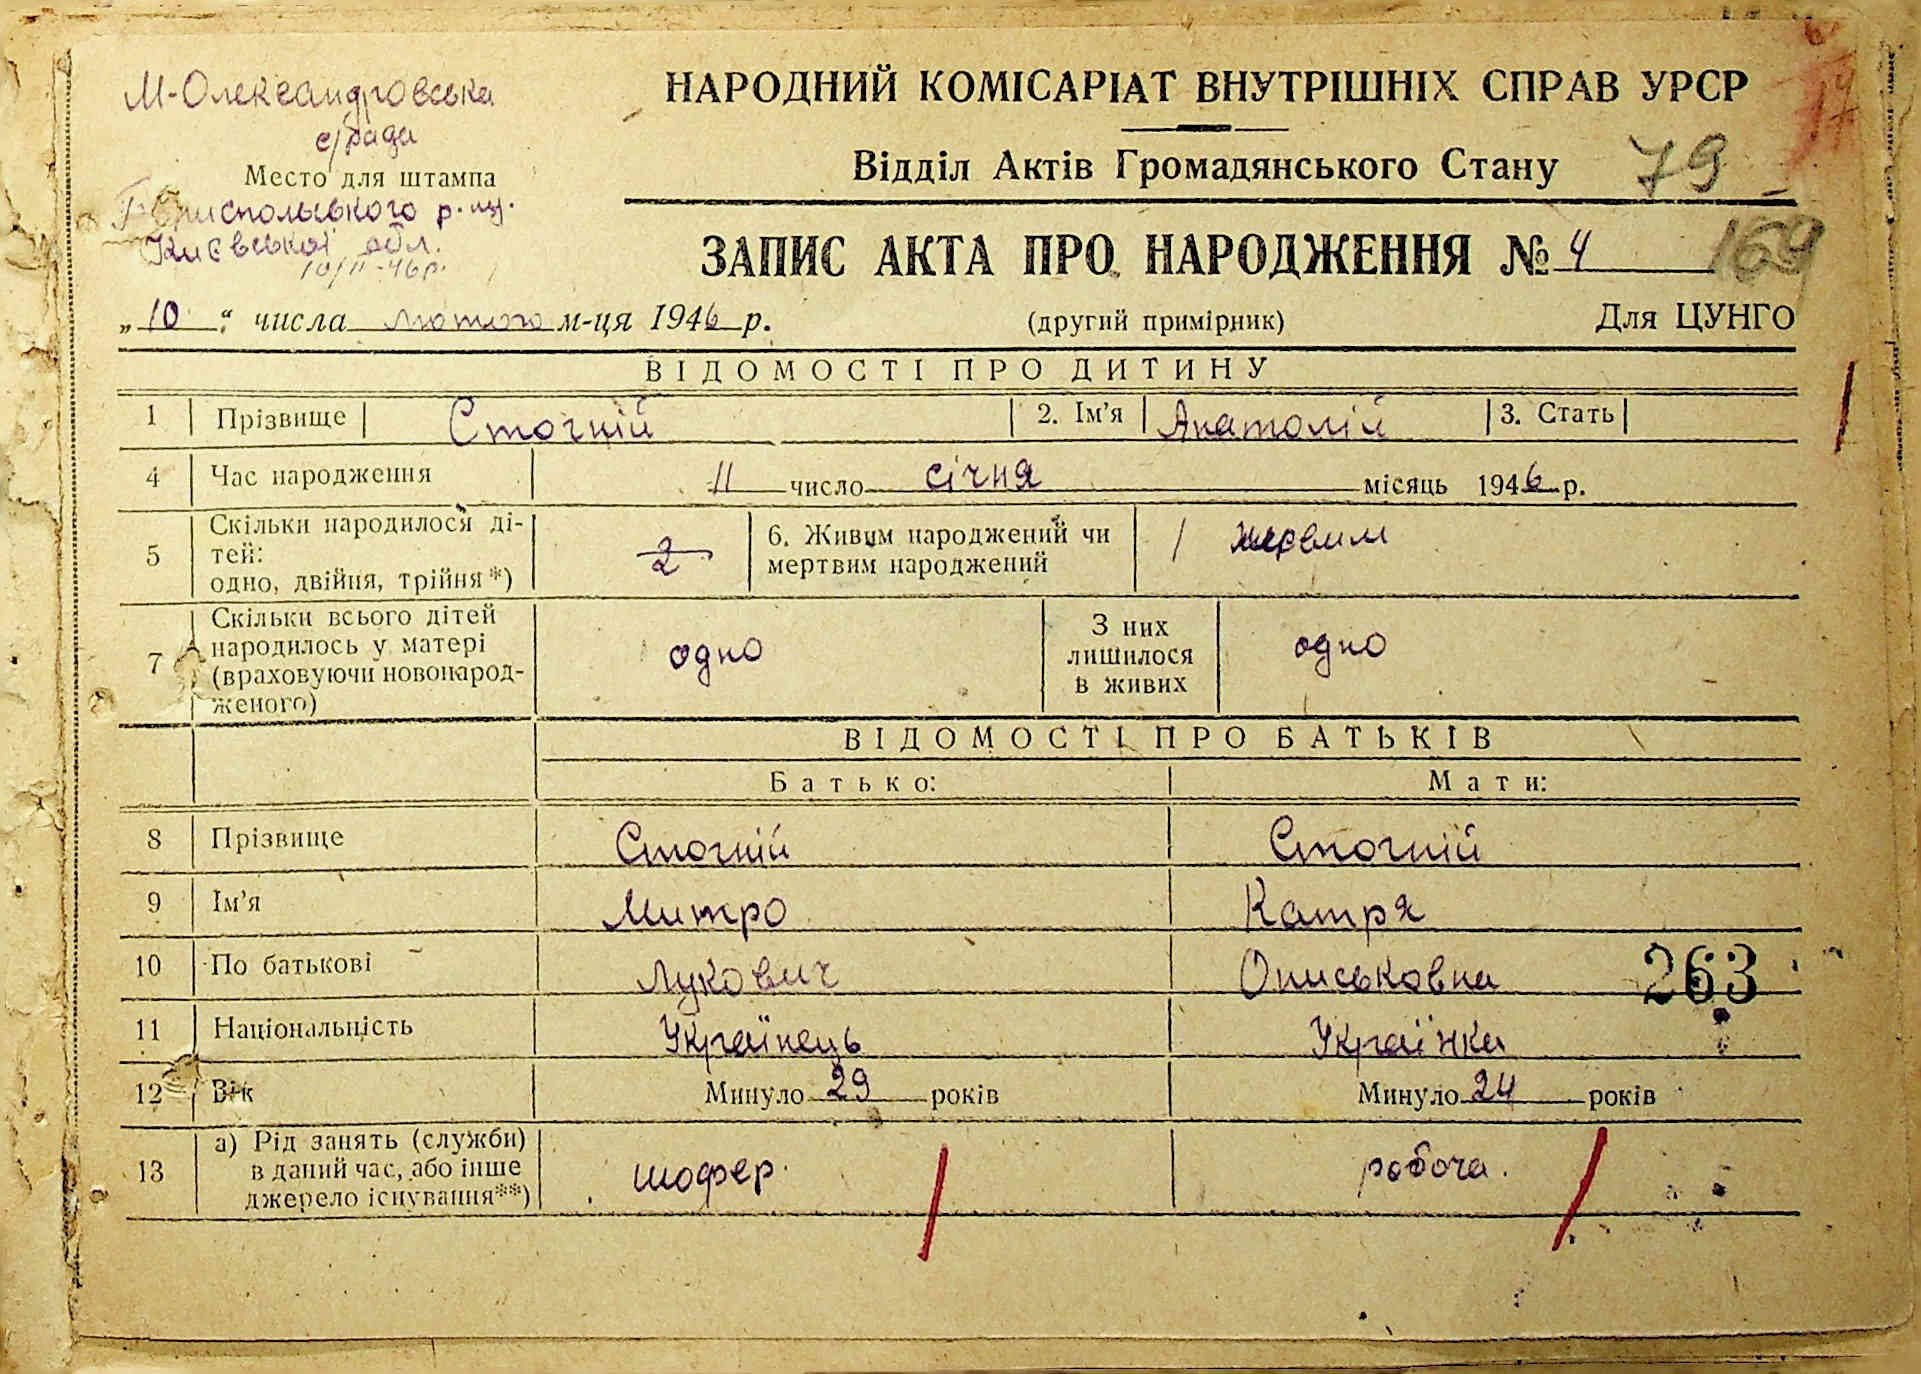 М-Олександровська
с/рада
Место для штампа
Бориспольського р-ну.
Київської обл.
10/II-46р.
НАРОДНИЙ КОМІСАРІАТ ВНУТРІШНІХ СПРАВ УРСР
Відділ Актів Громадянського Стану
79
ЗАПИС АКТА ПРО НАРОДЖЕННЯ № 4
169
„10“ числа лютого м-ця 1946 р. (другий примірник) Для ЦУНГО
ВІДОМОСТІ ПРО ДИТИНУ
1 Прізвище Стогній 2. Ім’я Анатолій 3. Стать
4 Час народження 11 число січня місяць 1946 р.
5 Скільки народилося ді-
тей:
одно, двійня, трійня*) 2
6. Живим народжений чи
мертвим народжений
7 Скільки всього дітей
народилось у матері
(враховуючи новонарод-
женого) одно
З них
лишилося
в живих одно
ВІДОМОСТІ ПРО БАТЬКІВ
Батько: Мати:
8 Прізвище Стогній Стогній
9 Ім’я Митро Катря
10 По батькові Лукович Описьковна 263
11 Національність Українець Українка
12 Вік Минуло 29 років Минуло 24 років
13 а) Рід занять (служби)
в даний час, або інше
джерело існування**) шофер. робоча.